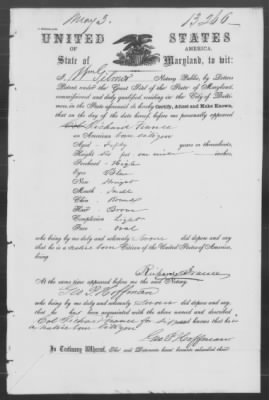 May 3. 13266
UNITED STATES
OF AMERICA.
State of Maryland, to wit:
I, Wm Gilmor Notary Public, by Letters
Patent under the Great Seal of the State of Maryland,
commissioned and duly qualified, residing in the City of Balti-
more, in the State aforesaid do hereby Certify, Attest and Make Known,
that on the day of the date hereof, before me personally appeared
Col Richard France
an American born citizen
Aged fifty years or thereabouts,
Height six feet inches
Forehead High
Eyes Blue
Nose
Mouth Small
Chin Round
Hair Brown
Complexion Light
Face Oval
who being by me duly and solemnly Sworn did depose and say
that he is a native born Citizen of the United States of America,
being
Richard France
At the same time appeared before me the said Notary
Geo P. Hoffman
who being by me duly and solemnly Sworn did depose and say
that he has been acquainted with the above named and described
Col Richard France for knows that he is
a native born Citizen
Geo P. Hoffman
In Testimony Whereof,